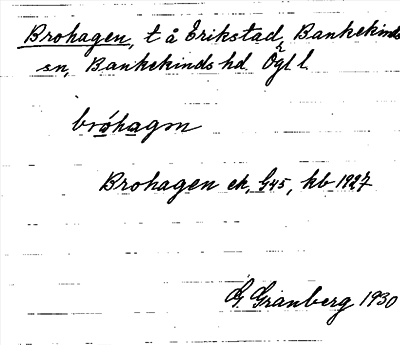 Brohagen, t å Erikstad, Bankekinds
sn, Bankekinds hd Ögl l
bróhagen
Brohagen ek, G45, kb 1927
G Granberg 1930